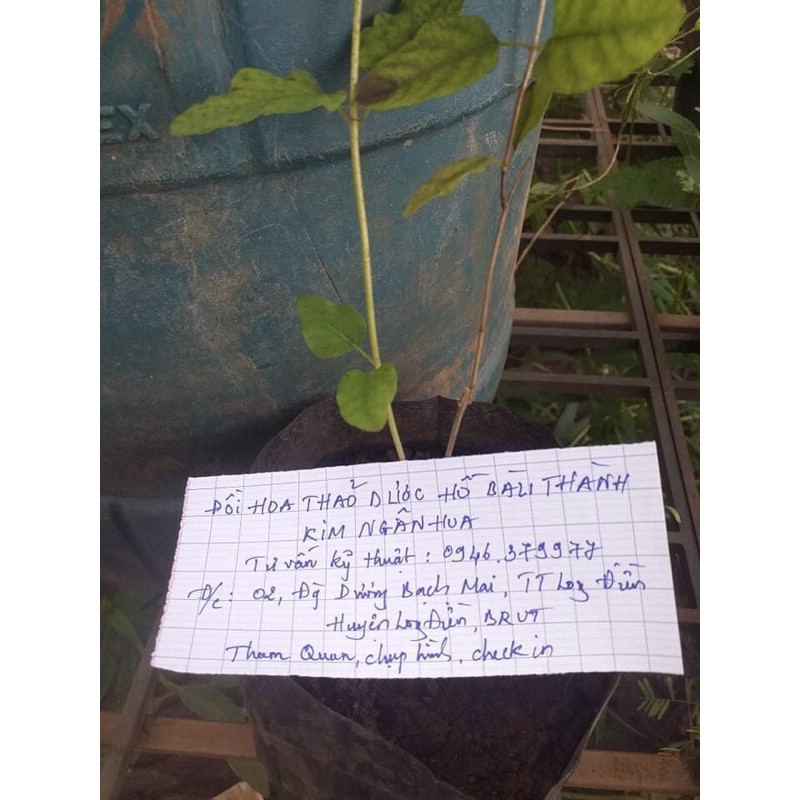 EX
ĐỒI HOA THẢO DƯỢC HỒ BÀU THÀNH
KIM NGÂN HUA
Tư vấn kỹ thuật: 0946.379977
Đ/c: 02, Đg Dương Bạch Mai, TT Log Điền
Huyện Log Điền, BRVT
Tham Quan, chụp hình, check in